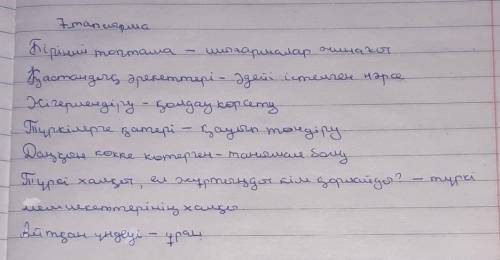 7 тапсырма
Бірінші топтама – шығармалар жинағы
Қастандық әрекеттері – әдейі істелген нәрсе
Жігерлендіру – қолдау көрсету
Түркілерге қатері – қауіп төндіру
Даңқын көкке көтерген – танымал болу
Түркі халқы, ел жұртыңды кім қорлайды? – түркі
мемлекеттерінің халқы
Айтқан үндеуі – ұран